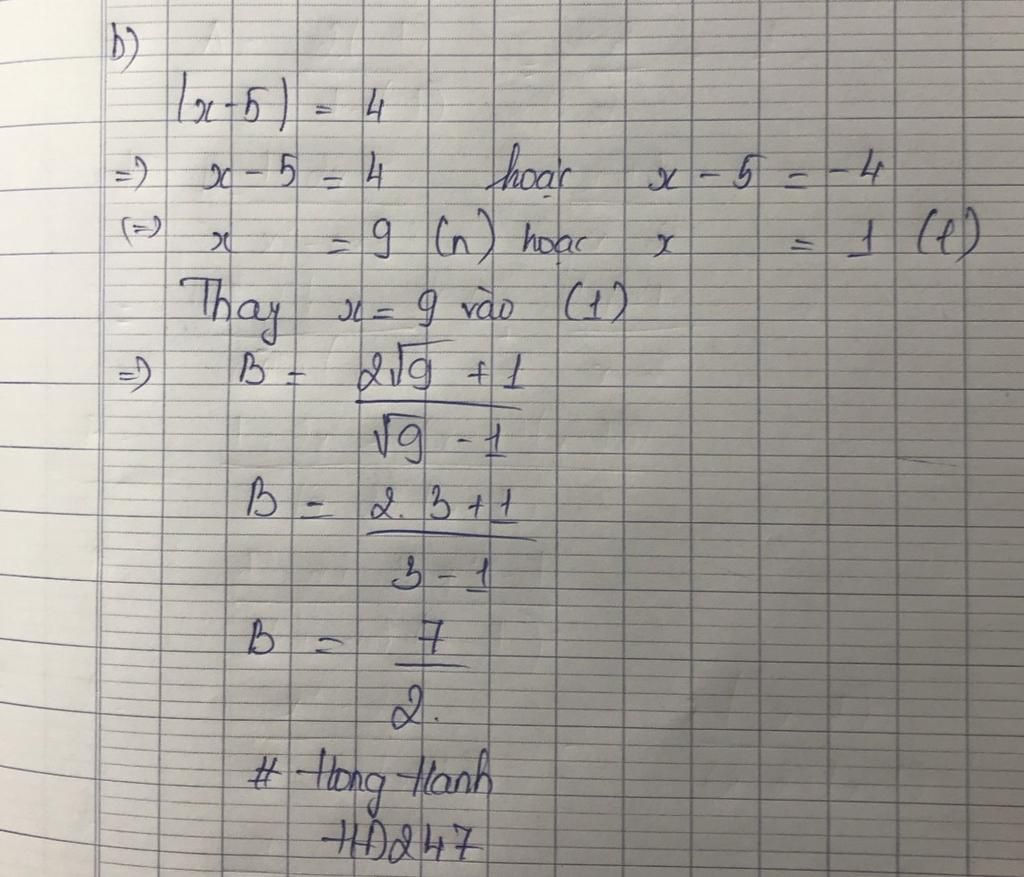 b)
|x-5| = 4
=> x - 5 = 4 hoặc x - 5 = -4
(=) x = 9 (n) hoặc x = 1 (l)
Thay x = 9 vào (1)
=> B = 2√9 + 1
√9 - 1
B = 2. 3 + 1
3 - 1
B = 7
2.
# Hong Hanh
HD247